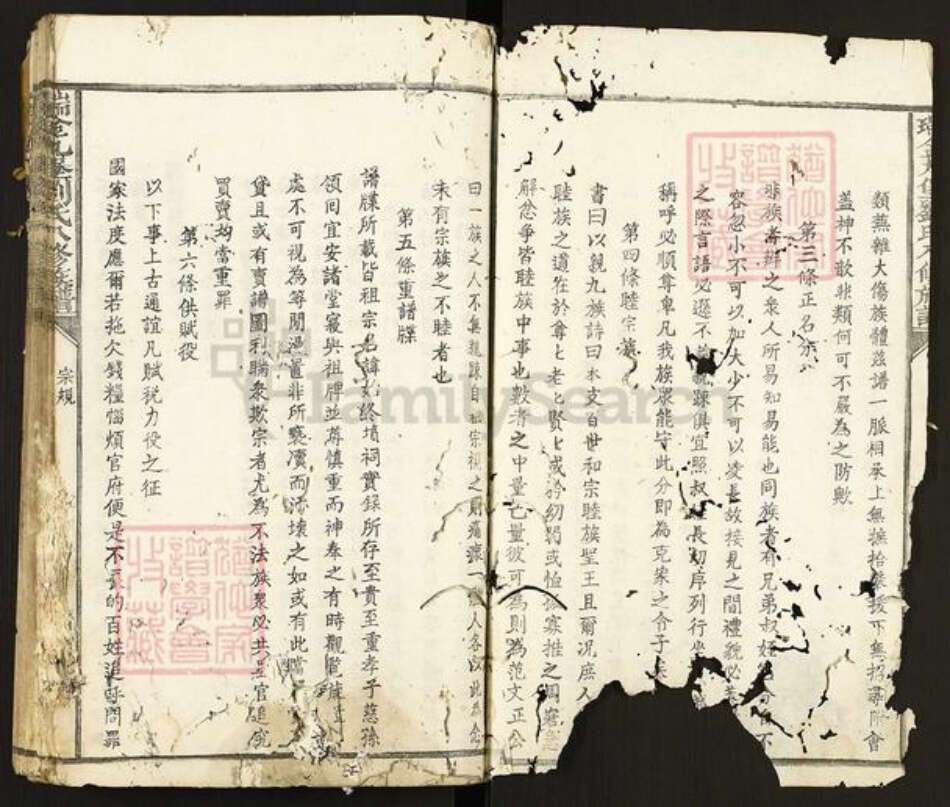 類蕪雜大傷族體茲譜一脈相承上無
蓋神不歆非類何可不嚴為之防歟
第三條正名分
非族之眾人所易知易能也同族者有兄弟叔姪
容忽小不可以加大少不可以凌長故接見之間禮貌必
之際言語必遜不
疎俱宜照叔姪長幼序列行坐
稱呼必順尊卑凡我族眾能守此分即為克家之令子矣
第四條睦宗族
書曰以親九族詩曰本支百世和宗睦族聖王且爾況庶人
睦族之道在於尊尊老老賢賢或矜幼弱或恤孤寡推之周窘急
解忿爭皆睦族中事也數者之中量己量彼可為則為范文正公
曰一族之人不無親疎自祖宗視之則痛癢一體人各以此為念
未有宗族之不睦者也
第五條重譜牒
譜牒所載皆祖宗名諱始終墳祠實錄所存至貴至重孝子慈孫
領回宜安諸堂寢與祖牌並尊慎重而神奉之有時觀覽
處不可視為等閒漫置非所褻瀆而汚壞之如或有此
貸且或有賣譜圖利瞞眾欺宗者尤為不法族眾必共呈官追究
買賣均當重罪
第六條供賦役
以下事上古通誼凡賦稅力役之征
國家法度應爾若拖欠錢糧惱煩官府便是不良的百姓追呼問罪
劉氏八修族譜
宗規
FamilySearch
譜學會
收藏
譜學會
收藏